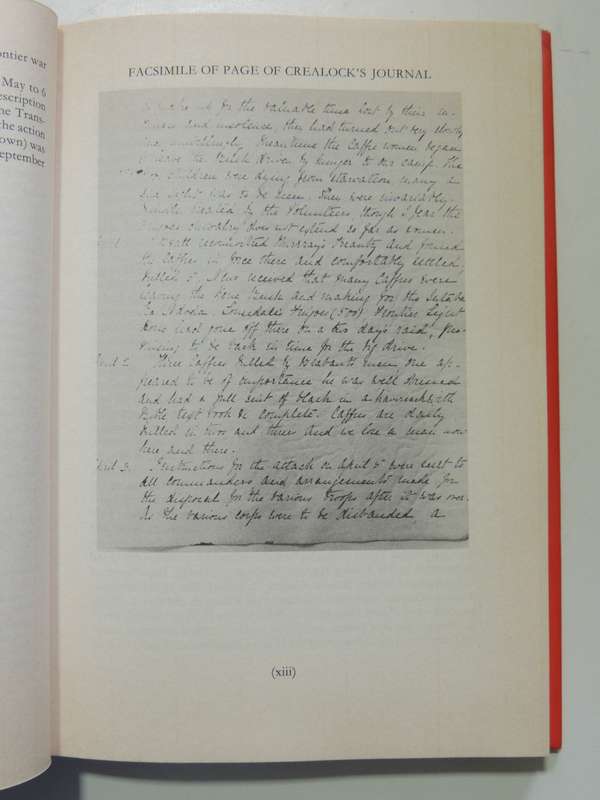 ontier war
May to 6
escription
ne Trans-
the action
own) was
eptember
FACSIMILE OF PAGE OF CREALOCK'S JOURNAL
to make up for the valuable time lost by their in-
and insolence, they had turned out very slowly
and unwillingly. Meantime the Caffre women began
to leave the Bush driven by hunger to our camp. The
children were dying from starvation, many a
sad sight was to be seen. They were invariably
kindly treated by the Volunteers, though I fear the
Fingoes chivalry does not extend so far as women.
reconnoitred Murray's Krantz and found
the Caffres in force there and comfortably settled,
killed 5. News received that many Caffres were
leaving the Bush and making for the Intaba
Ka Ndoda. Lonsdale's Fingoes (500) Frontier Light
Horse had gone off there on a two day's raid, pro-
mising to be back in time for the big drive.
April 2. Three Caffres killed by Brabant's men, one ap-
peared to be of importance he was well dressed
and had a full suit of black in a haversack, with
Bible text book &c complete. Caffres are daily
killed in twos and threes and we lose a man now
here and there.
April 3. Instructions for the attack on April 5 were sent to
all commanders and arrangements made for
the disposal for the various troops after it was over.
As the various corps were to be disbanded a
(xiii)